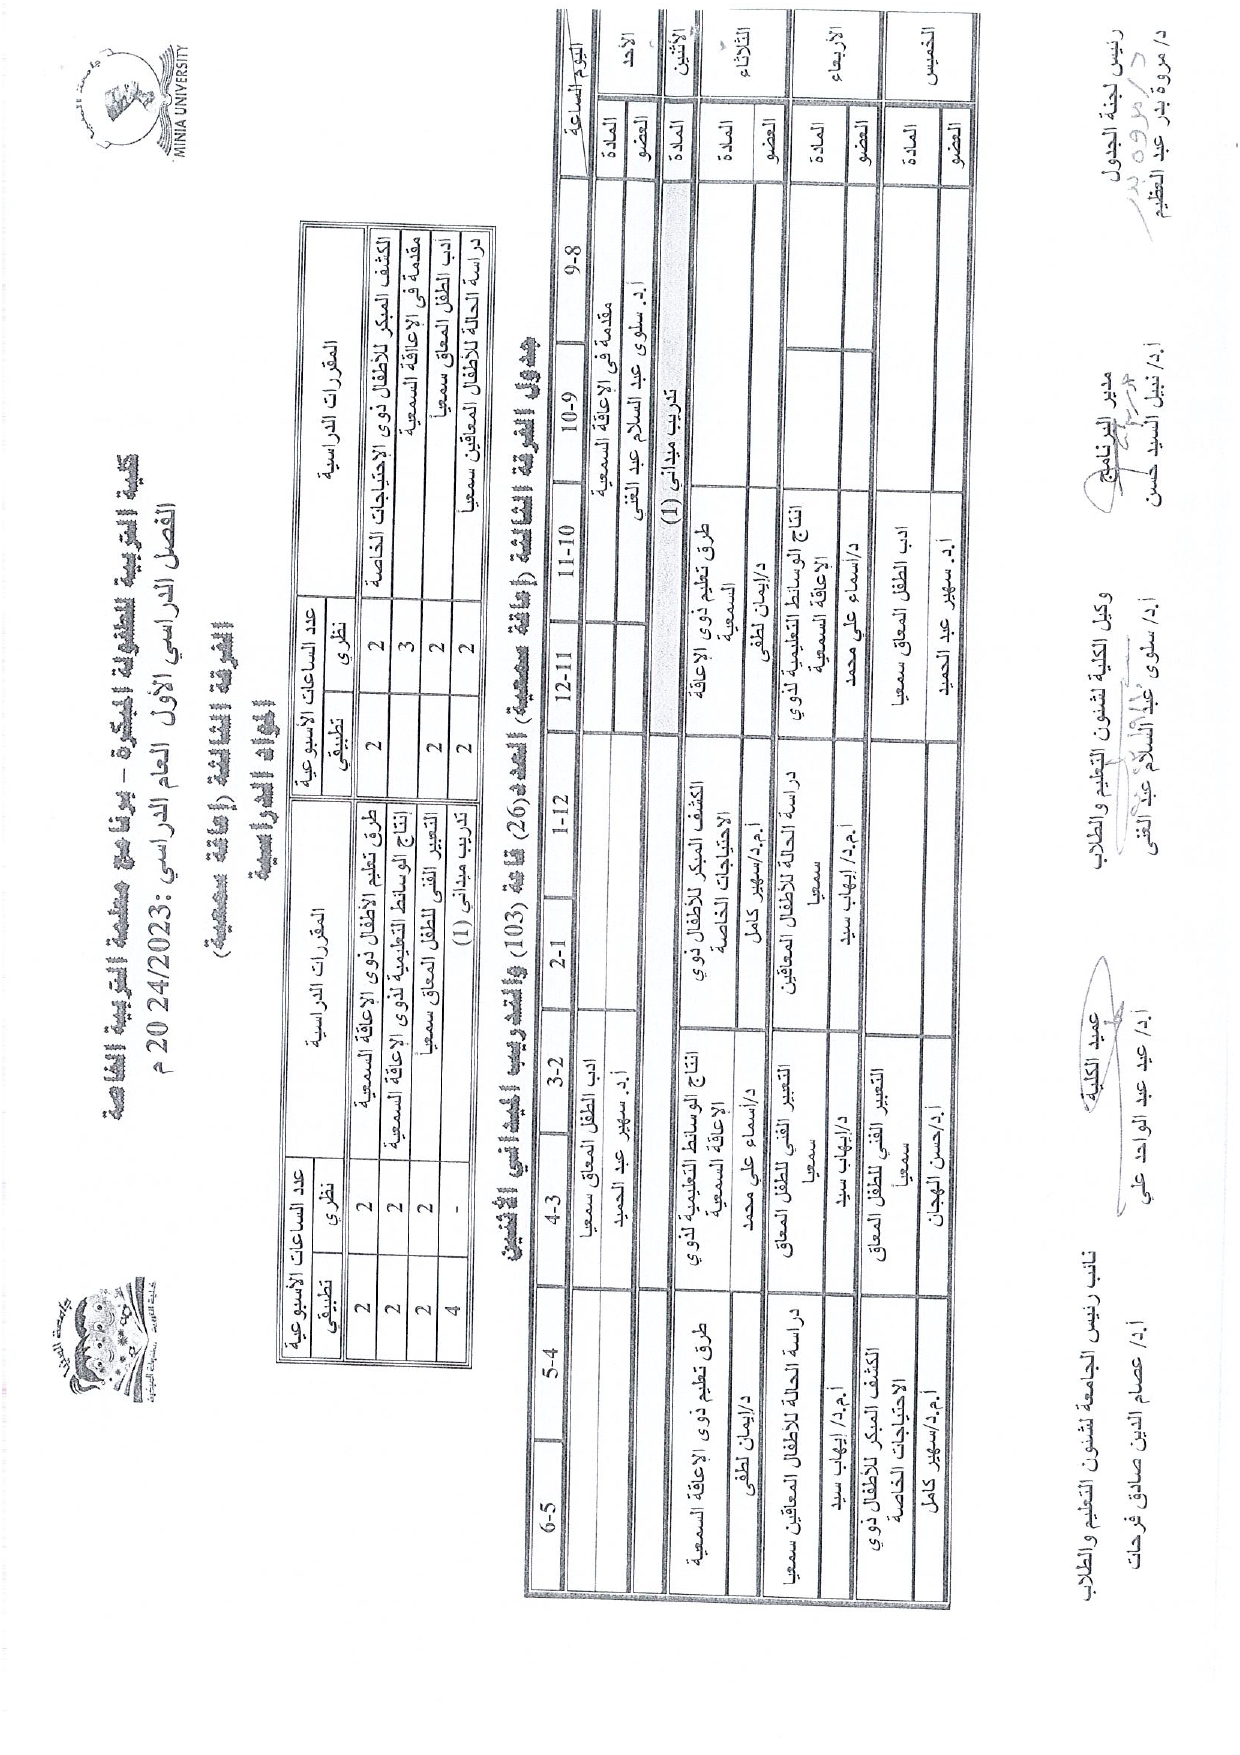 MINIA UNIVERSITY
كلية التربية للطفولة المبكرة – برنامج معلمة التربية الخاصة
الفصل الدراسي الأول العام الدراسي :20 24/2023 م
الفرقة الثالثة (إعاقة سمعية)
المواد الدراسية
المقررات الدراسية عدد الساعات الأسبوعية المقررات الدراسية عدد الساعات الأسبوعية
نظري تطبيقي نظري تطبيقي
الكشف المبكر للأطفال ذوى الإحتياجات الخاصة 2 2 طرق تعليم الأطفال ذوى الإعاقة السمعية 2 2
مقدمة فى الإعاقة السمعية 3 إنتاج الوسائط التعليمية لذوى الإعاقة السمعية 2 2
أدب الطفل المعاق سمعياً 2 2 التعبير الفنى للطفل المعاق سمعياً 2 2
دراسة الحالة للأطفال المعاقين سمعياً 2 2 تدريب ميداني (1) - 4
جدول الفرقة الثالثة (إعاقة سمعية) العدد(26) قاعة (103) والتدريب الميداني الأثنين
اليوم الساعة 9-8 10-9 11-10 12-11 1-12 2-1 3-2 4-3 5-4 6-5
الأحد المادة مقدمة فى الإعاقة السمعية ادب الطفل المعاق سمعيا
العضو أ.د. سلوى عبد السلام عبد الغنى أ.د. سهير عبد الحميد
الأثنين المادة تدريب ميداني (1)
الثلاثاء المادة طرق تعليم ذوى الإعاقة السمعية الكشف المبكر للأطفال ذوي الاحتياجات الخاصة انتاج الوسائط التعليمية لذوي الإعاقة السمعية طرق تعليم ذوى الإعاقة السمعية
العضو د/إيمان لطفى أ.م.د/سهير كامل د/أسماء علي محمد د/إيمان لطفى
الأربعاء المادة انتاج الوسائط التعليمية لذوي الإعاقة السمعية دراسة الحالة للأطفال المعاقين سمعيا التعبير الفني للطفل المعاق سمعيا دراسة الحالة للأطفال المعاقين سمعيا
العضو د/أسماء علي محمد أ.م.د/ إيهاب سيد د/إيهاب سيد أ.م.د/ إيهاب سيد
الخميس المادة ادب الطفل المعاق سمعيا التعبير الفني للطفل المعاق سمعياً الكشف المبكر للأطفال ذوي الاحتياجات الخاصة
العضو أ.د. سهير عبد الحميد أ.د/حسن الهجان أ.م.د/سهير كامل
رئيس لجنة الجدول مدير البرنامج وكيل الكلية لشئون التعليم والطلاب عميد الكلية نائب رئيس الجامعة لشئون التعليم والطلاب
د/ مروة بدر
د/ مروة بدر عبد العظيم أ.د/ نبيل السيد حسن أ.د/ سلوى عبد السلام عبد الغنى أ.د/ عيد عبد الواحد علي أ.د/ عصام الدين صادق فرحات